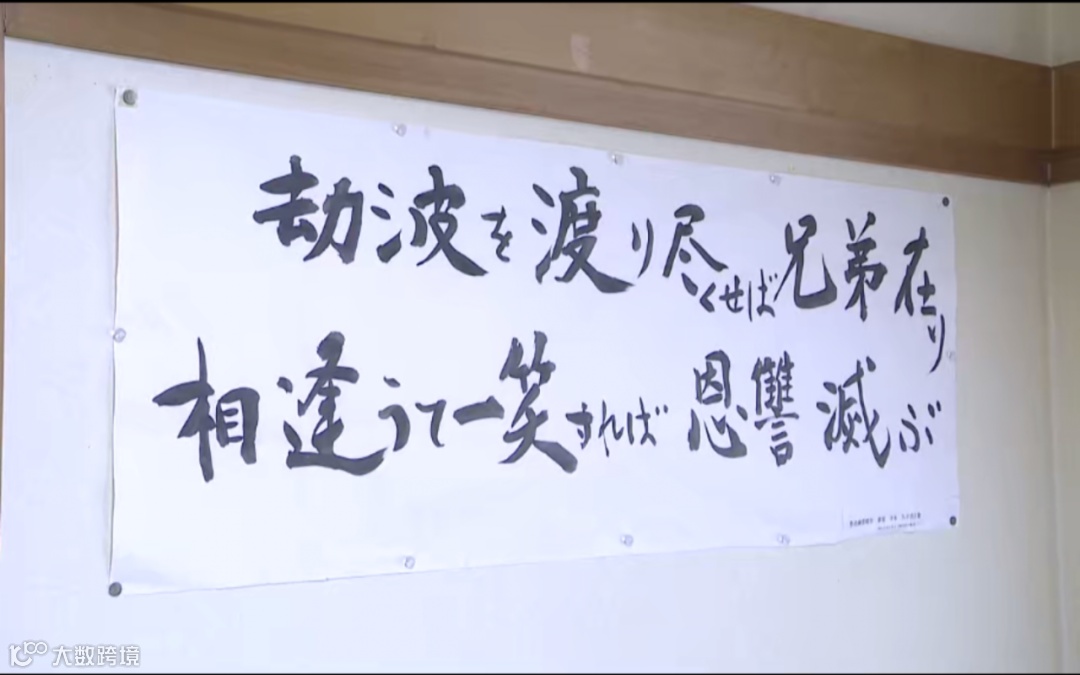 劫波を渡り尽くせば兄弟在り
相逢うて一笑すれば恩讐滅ぶ
大数跨境